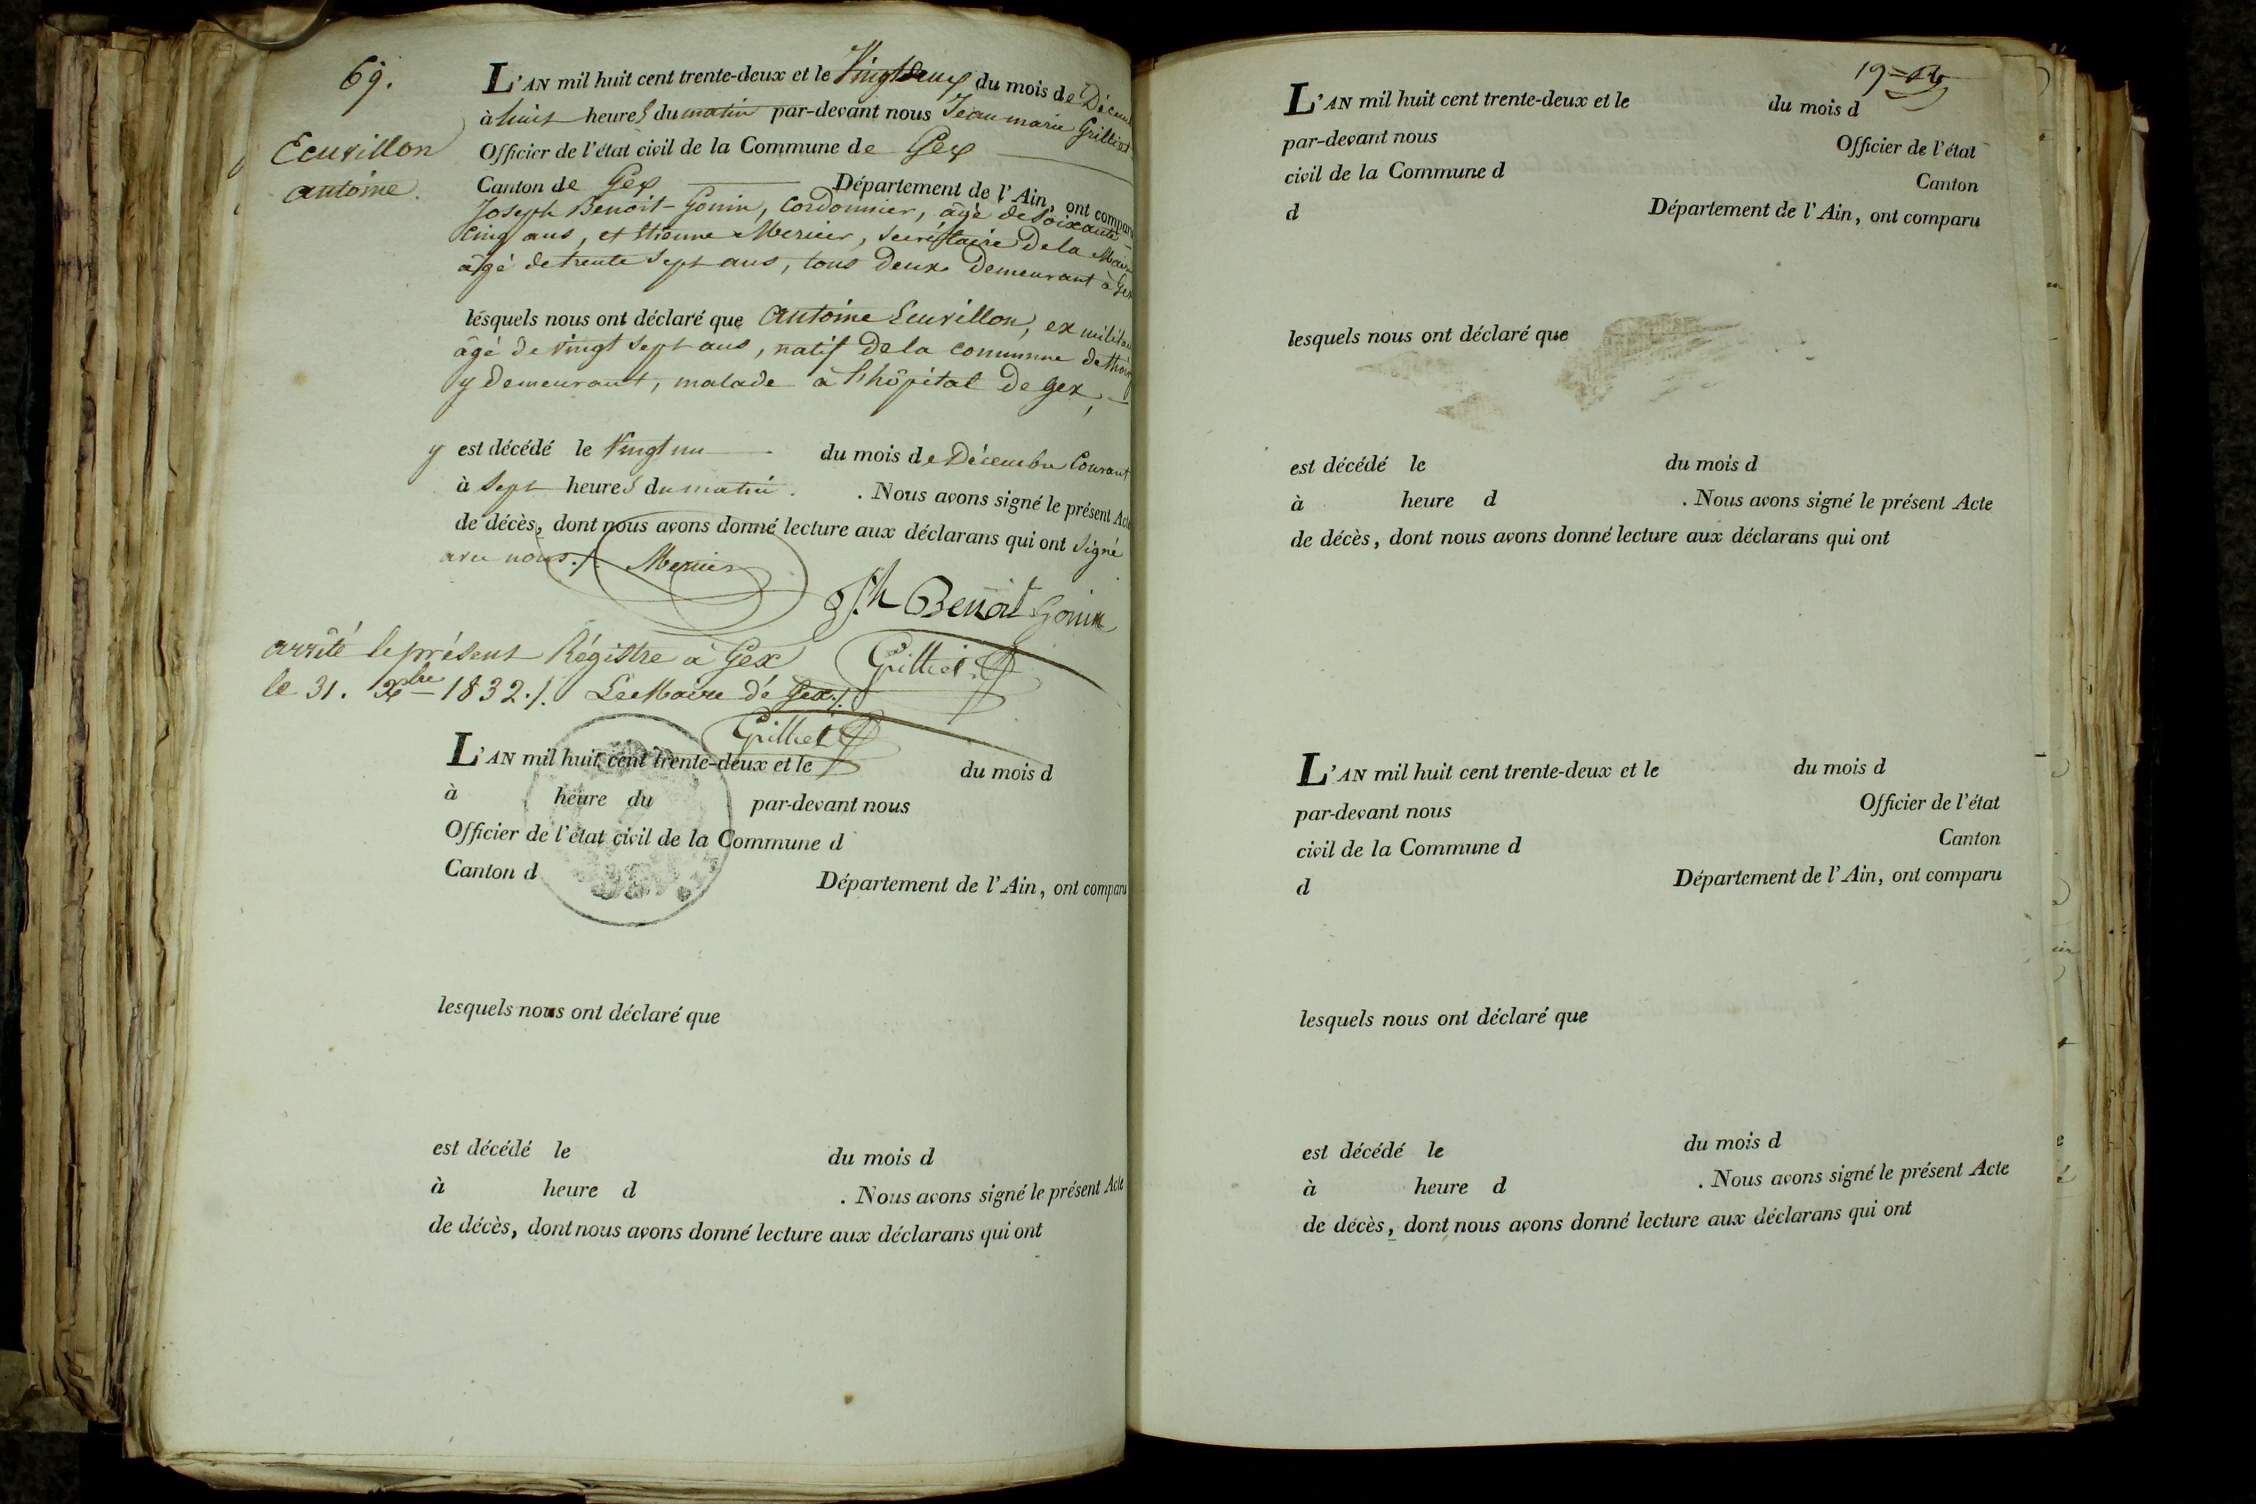 69.
Ecuvillon
antoine.
L'AN mil huit cent trente-deux et le Vingt deux du mois de Décemb
à huit heures du matin par-devant nous Jean marie Grilliet
Officier de l'état civil de la Commune de Gex
Canton de Gex Département de l'Ain, ont comparu
Joseph Benoit-Gonin, Cordonnier, âgé de Soixante
cinq ans, et Etienne Mercier, Secrétaire de la Mair
âgé de trente Sept ans, tous deux Demeurant à Gex
lesquels nous ont déclaré que antoine Ecuvillon, ex militai
âgé de vingt Sept ans, natif de la commune de thoiry
y demeurant, malade à l'hôpital de Gex,
y est décédé le Vingt un du mois de Décembre Courant
à Sept heures du matin. . Nous avons signé le présent Acte
de décès, dont nous avons donné lecture aux déclarans qui ont Signé
avec nous./. Mercier
Jh Benoit Gonin
arrêté le présent Régistre à Gex Grilliet
le 31. Xbre 1832./. Le Maire de Gex./.
Grilliet
L'AN mil huit cent trente-deux et le du mois d
à heure du par-devant nous
Officier de l'état civil de la Commune d
Canton d Département de l'Ain, ont comparu
lesquels nous ont déclaré que
est décédé le du mois d
à heure d . Nous avons signé le présent Acte
de décès, dont nous avons donné lecture aux déclarans qui ont
19
L'AN mil huit cent trente-deux et le du mois d
par-devant nous Officier de l'état
civil de la Commune d Canton
d Département de l'Ain, ont comparu
lesquels nous ont déclaré que
est décédé le du mois d
à heure d . Nous avons signé le présent Acte
de décès, dont nous avons donné lecture aux déclarans qui ont
L'AN mil huit cent trente-deux et le du mois d
par-devant nous Officier de l'état
civil de la Commune d Canton
d Département de l'Ain, ont comparu
lesquels nous ont déclaré que
est décédé le du mois d
à heure d . Nous avons signé le présent Acte
de décès, dont nous avons donné lecture aux déclarans qui ont